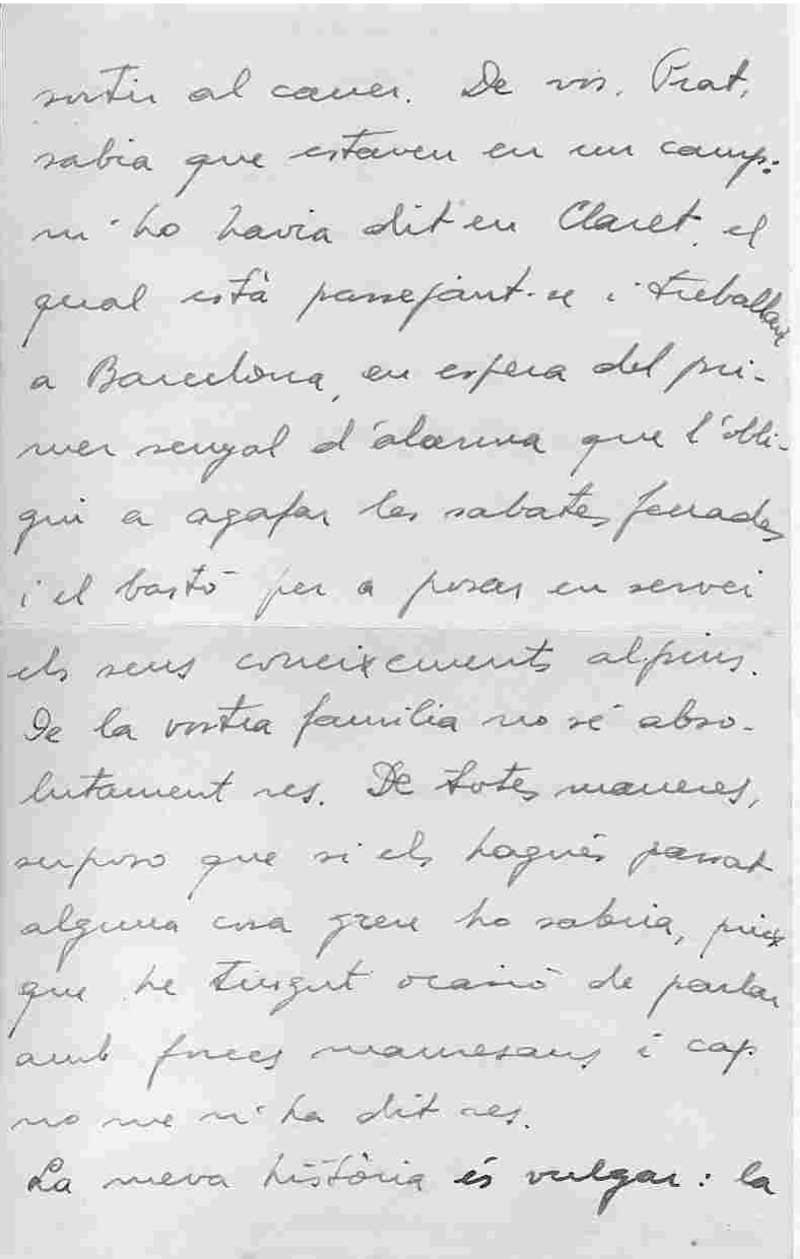 sortir al carrer. De vós, Prat,
sabia que estaveu en un camp:
m'ho havia dit en Claret, el
qual està passejant-se i treballant
a Barcelona, en espera del pri-
mer senyal d'alarma que l'obli-
gui a agafar les sabates ferrades
i el bastó per a posar en servei
els seus coneixements alpins.
De la vostra familia no sé abso-
lutament res. De totes maneres,
suposo que si els hagués passat
alguna cosa greu ho sabria, puix
que he tingut ocasió de parlar
amb forces manresans i cap
no me n'ha dit res.
La meva història és vulgar: la